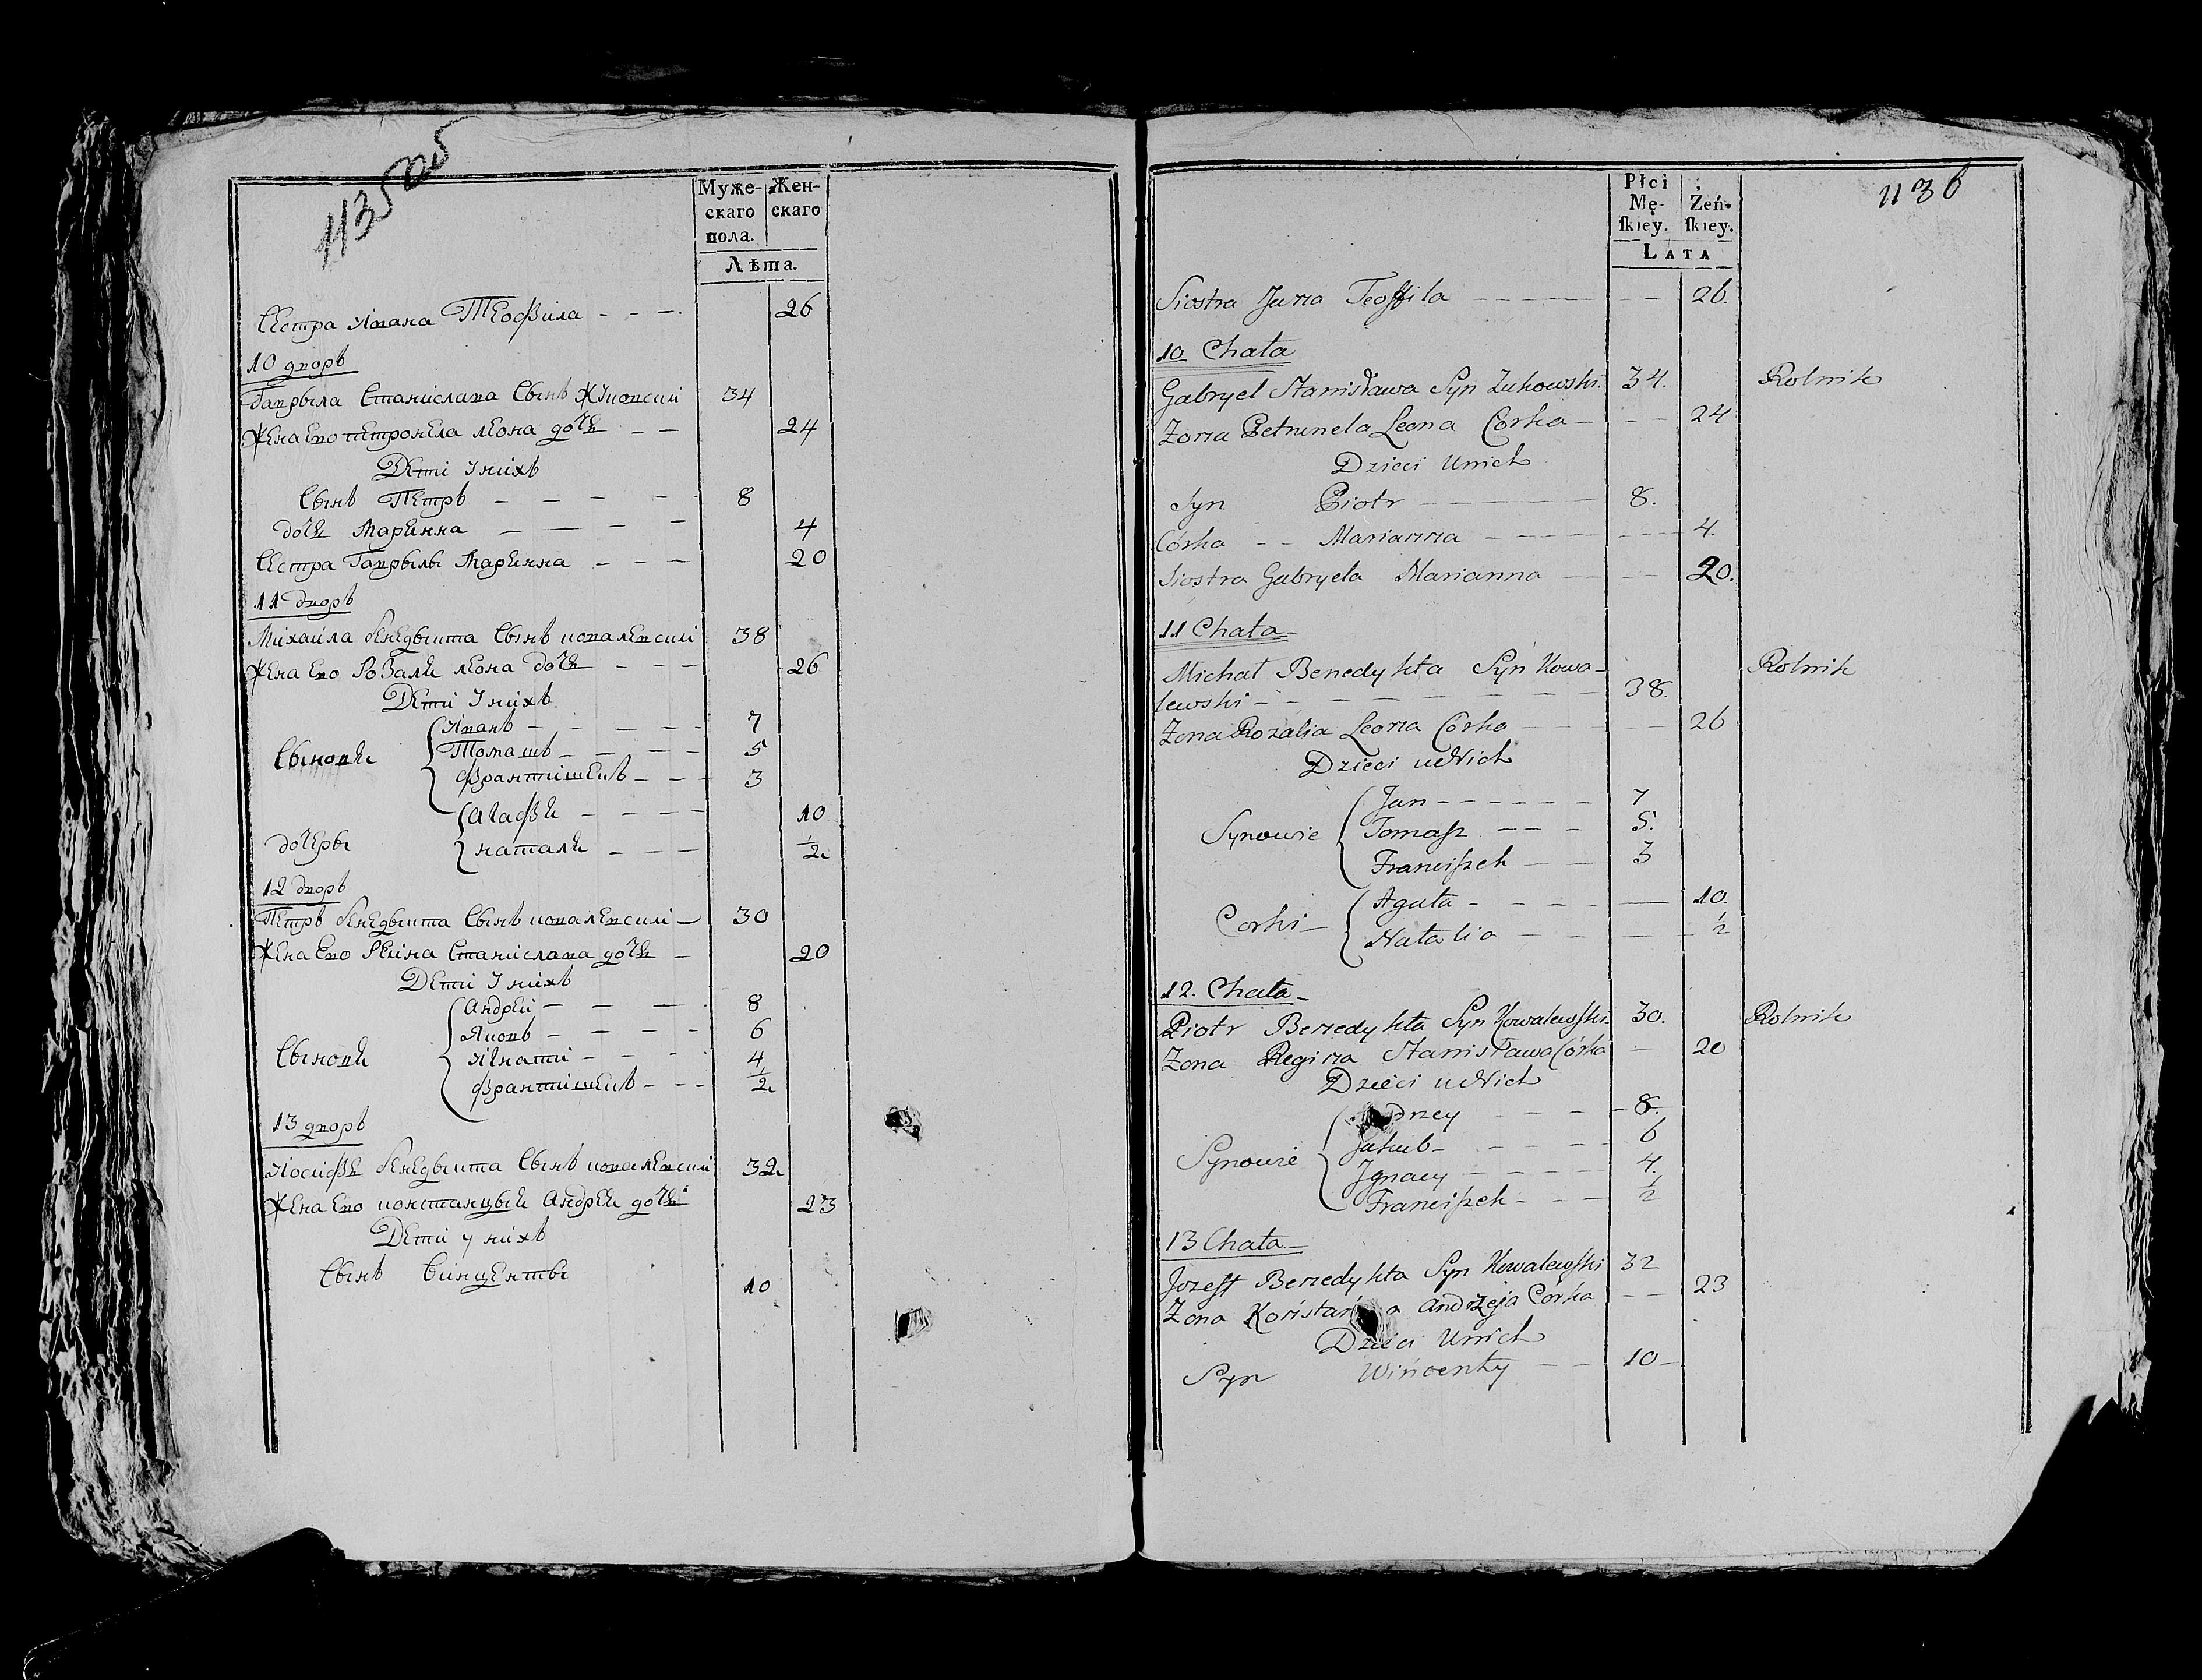 113 об
Муже- Жен-
скаго скаго
пола.
Лѣта.
Сестра Ивана Теофила - - - 26
10 дворъ
Гаврыла Станислава Сынъ Жуковски 34
Жена Ево петронела леона дочь - - 24
Дети У нихъ
Сынъ Петръ - - - - 8
дочь Марянна - - - - 4
Сестра Гаврылы Марянна - - - 20
11 дворъ
Михаила бенедыкта Сынъ ковалевски 38
Жена Ево Розаля леона дочь - - - 26
Дети У нихъ
Иванъ - - - - - 7
Сыновя Томашъ - - - - 5
Франтишекъ - - - 3
Агафя - - - - 10
дочеры наталя - - - 1/2
12 дворъ
Петръ бенедыкта Сынъ ковалевски - 30
Жена Ево Реина Станислава дочь - 20
Дети У нихъ
Андрей - - - - 8
Яковъ - - - - 6
Сыновя Игнати - - - 4
Франтишекъ - - - 1/2
13 дворъ
Иосифъ бенедыкта Сынъ ковалевски 32
Жена Ево констанцыя Андрея дочь 23
Дети у нихъ
Сынъ Винценты 10
Płci Żeń-
Mę- ſkiey.
ſkiey.
LATA
113 6
Siostra Jana Teoffila - - - - - 26.
10 Chata
Gabryel Stanisława Syn Zukowski. 34. Rolnik
Zona Petrunela Leona Corka - - - 24
Dzieci Unich
Syn Piotr - - - - - 8.
Córka - - Marianna - - - - - 4.
Siostra Gabryela Marianna - - - 20.
11 Chata -
Michał Benedykta Syn Kowa- Rolnik
lewski - - - - - - - 38.
Zona Rozalia Leona Córka - - - 26
Dzieci u Nich
Jan - - - - - - 7
Synowie Tomaſz - - - 5.
Franciſzek - - - 3
Agata - - - - - 10.
Corki - Natalia - - - - - 1/2
12. Chata -
Piotr Benedykta Syn Kowalewſki. 30. Rolnik
Zona Regina Stanisława Córka - 20
Dzieci u Nich
drzey - - - - 8.
Jakub - - - - - 6
Synowie Jgnacy - - - - - 4.
Franciſzek - - - 1/2
13 Chata. -
Jozeff Benedykta Syn Kowalewſki 32
Zona Konstan a Andrzeja Corka - - 23
Dzieci Unich
Syn Wincenty - - 10 -